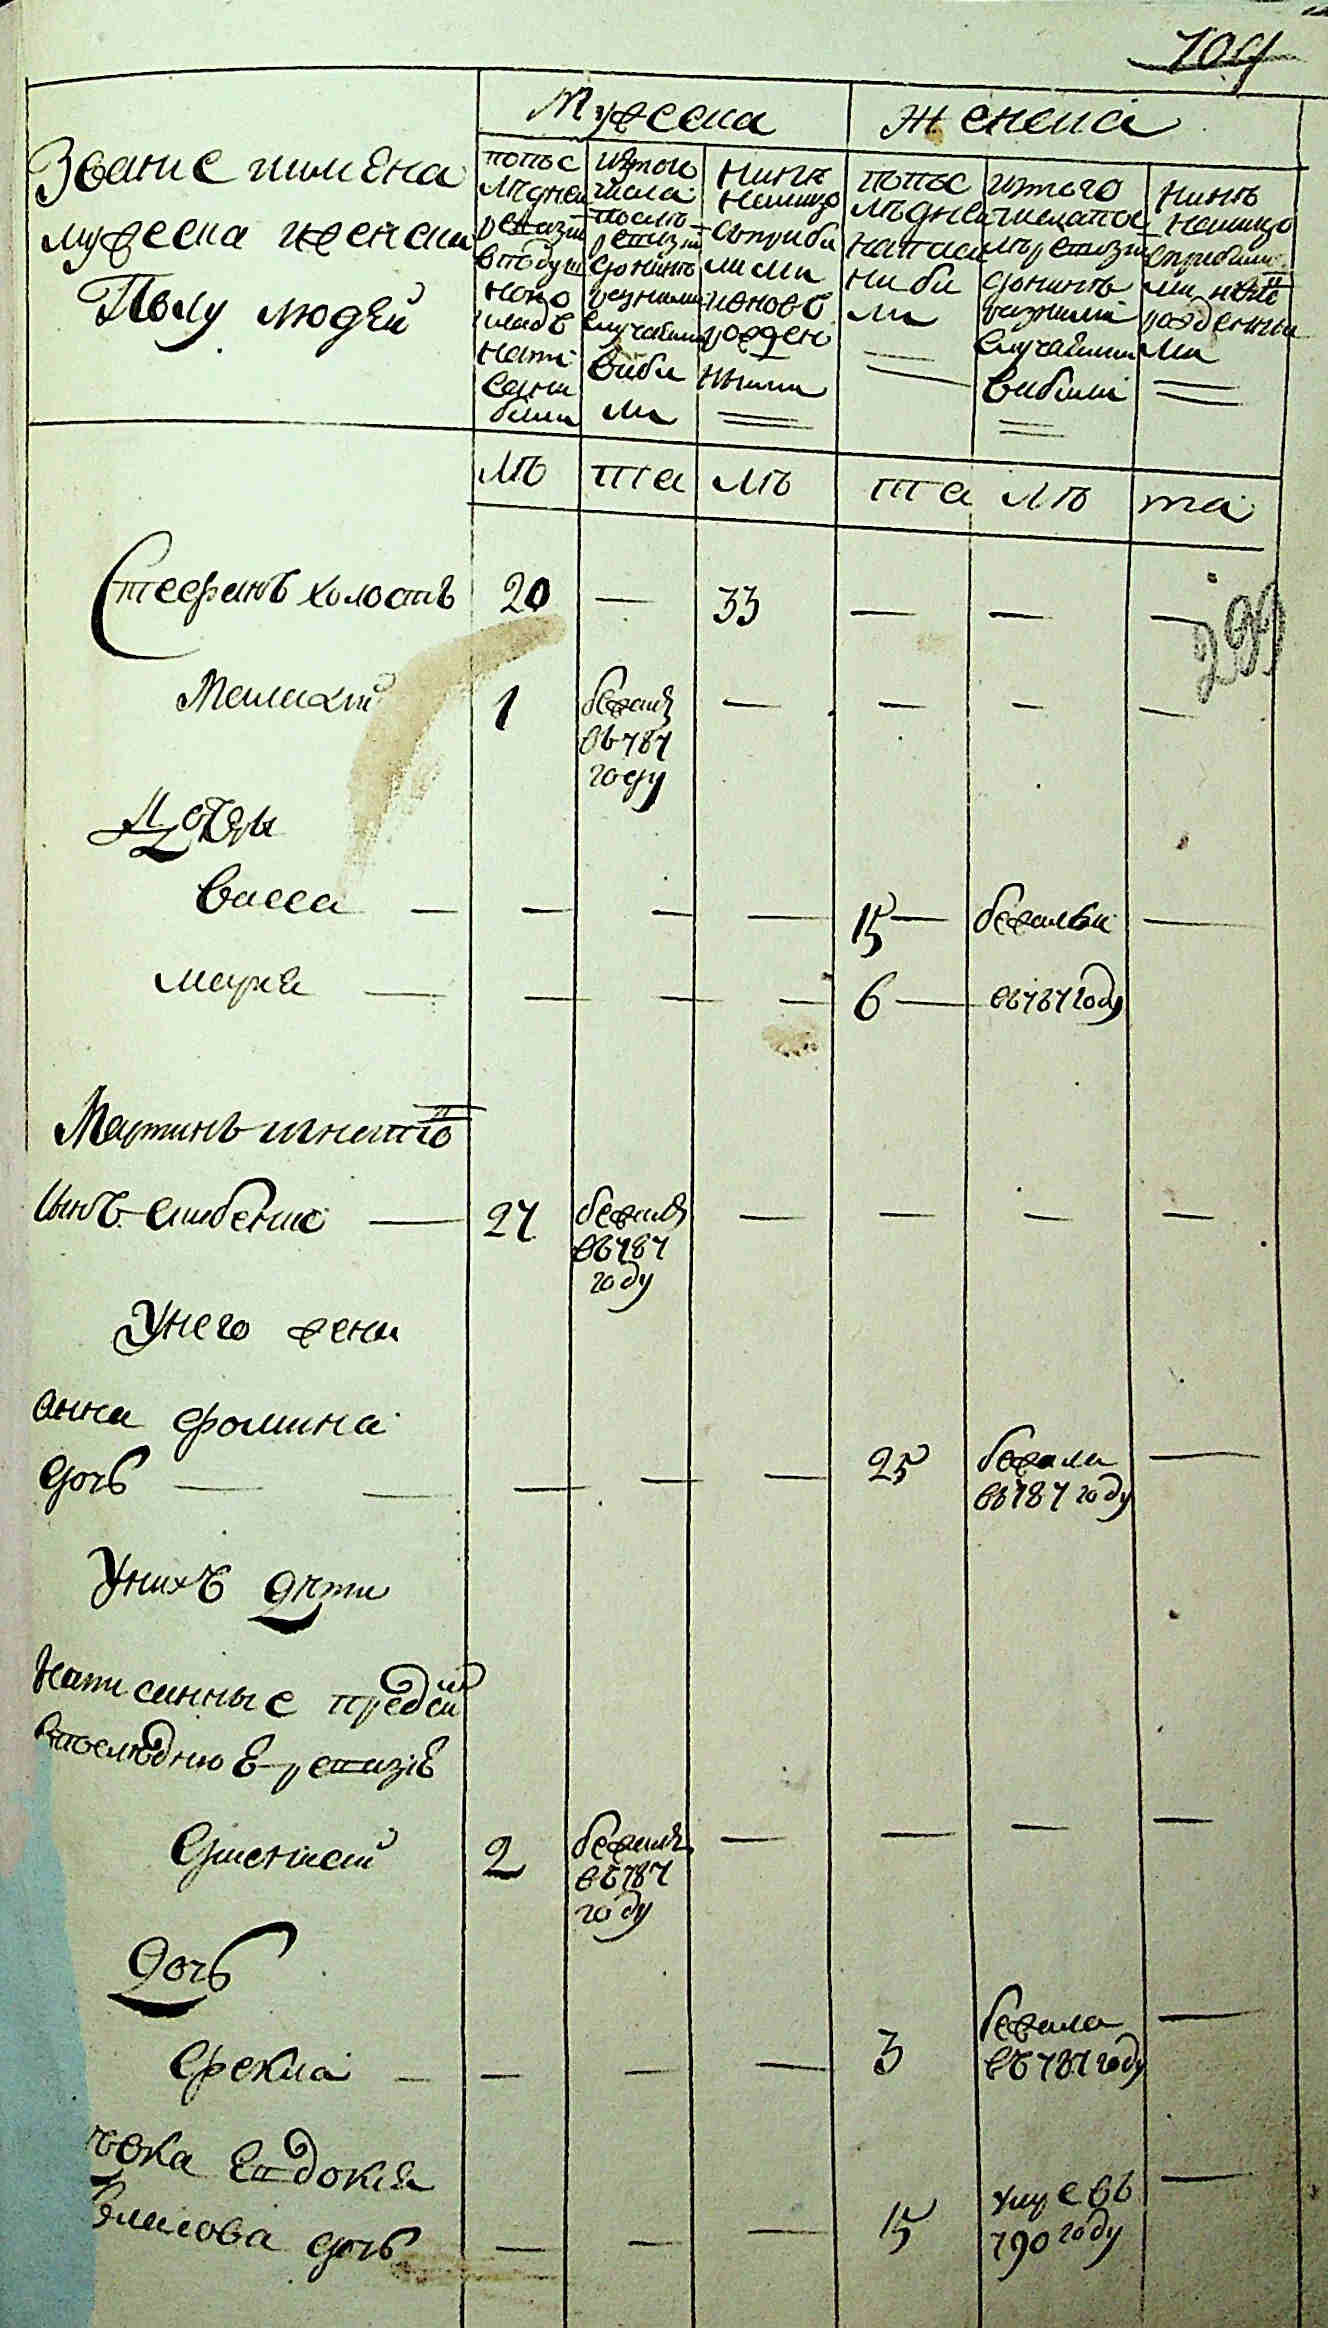 104
Мужеска
Женска
Звание имена
мужеска иженска
Полу людей
попос
ледней
ревизїи
вподуш
ном о
кладѣ
напи
саны
были
изтого
числа
послѣ
ревизїи
донынѣ
разными
случаями
выбы
ли
нынѣ
налицо
сприбы
лыми
иновь
рожден
ными
попос
лѣдней
написа
ны бы
ли
изтого
числапос
лѣревизїи
донынѣ
разными
случаями
выбыли
нынѣ
налицо
сприбылы
ми
рожденны
ми
лѣ та лѣ та лѣ та
Стефанъ холостъ 20 — 33 — — —
299
Малахїй 1 бежалъ — — — —
въ787
году
Дочери
Васса — — — — 15 — бежалъи —
Марья — — — — 6 — въ787году
Мартинъ игнатїв
сынъ 27 бежалъ — — — —
въ787
году
Унего жена
анна фомина
дочь — — — — — 25 бежала —
въ787 году
Унихъ дѣти
написанные предсїи
впоследнюю ревизїе
2 бежалъ — — — —
въ787
году
Дочь
Фекла — — — — 3 бежала —
въ787году
девка Евдокия
дочь — — — 15 умре въ —
790 году